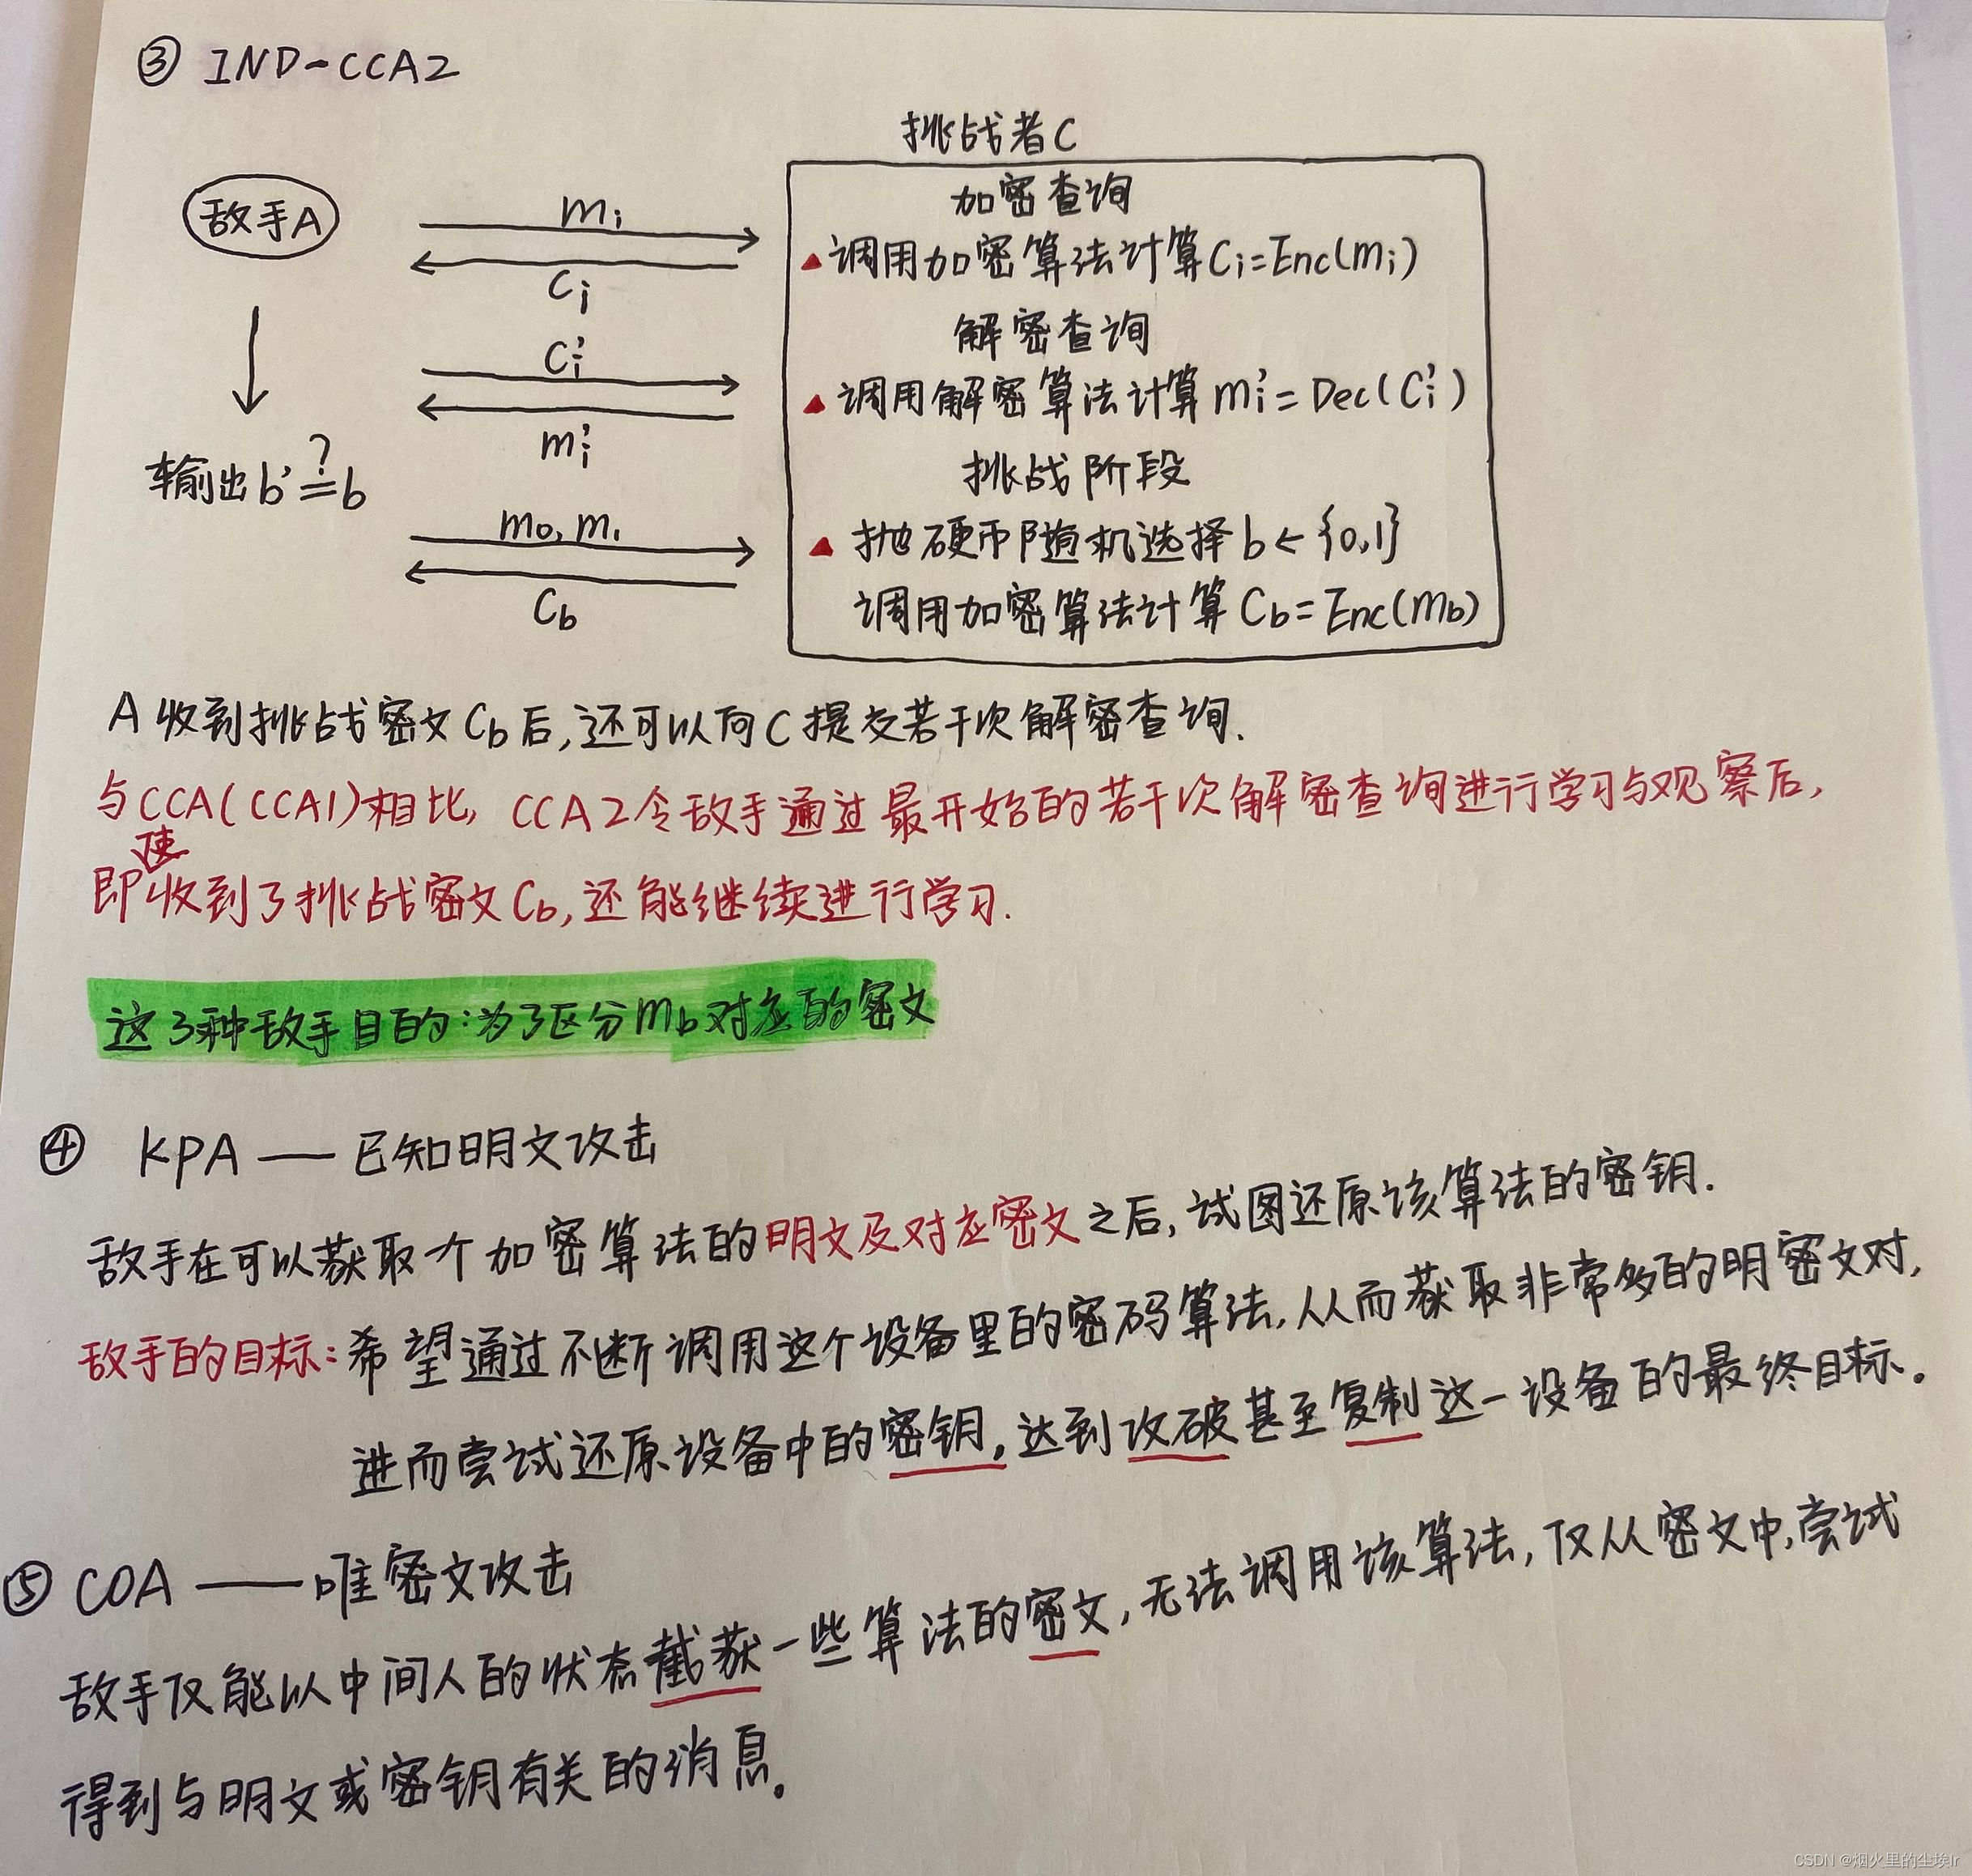 ③ IND-CCA2
挑战者C
敌手A
mi
Ci
加密查询
▲调用加密算法计算Ci=Enc(mi)
解密查询
Ci'
mi'
▲调用解密算法计算mi'=Dec(Ci')
输出b'≟b
挑战阶段
m0,m1
Cb
▲抛硬币随机选择b←{0,1}
调用加密算法计算Cb=Enc(mb)
A收到挑战密文Cb后,还可以向C提交若干次解密查询.
与CCA(CCA1)相比,CCA2令敌手通过最开始的若干次解密查询进行学习与观察后,
即使收到了挑战密文Cb,还能继续进行学习.
这3种敌手目的:为了区分mb对应的密文
④ KPA——已知明文攻击
敌手在可以获取个加密算法的明文及对应密文之后,试图还原该算法的密钥.
敌手的目标:希望通过不断调用这个设备里的密码算法,从而获取非常多的明密文对,
进而尝试还原设备中的密钥,达到攻破甚至复制这一设备的最终目标。
⑤ COA——唯密文攻击
敌手仅能以中间人的状态截获一些算法的密文,无法调用该算法,仅从密文中,尝试
得到与明文或密钥有关的消息。
CSDN @烟火里的尘埃lr